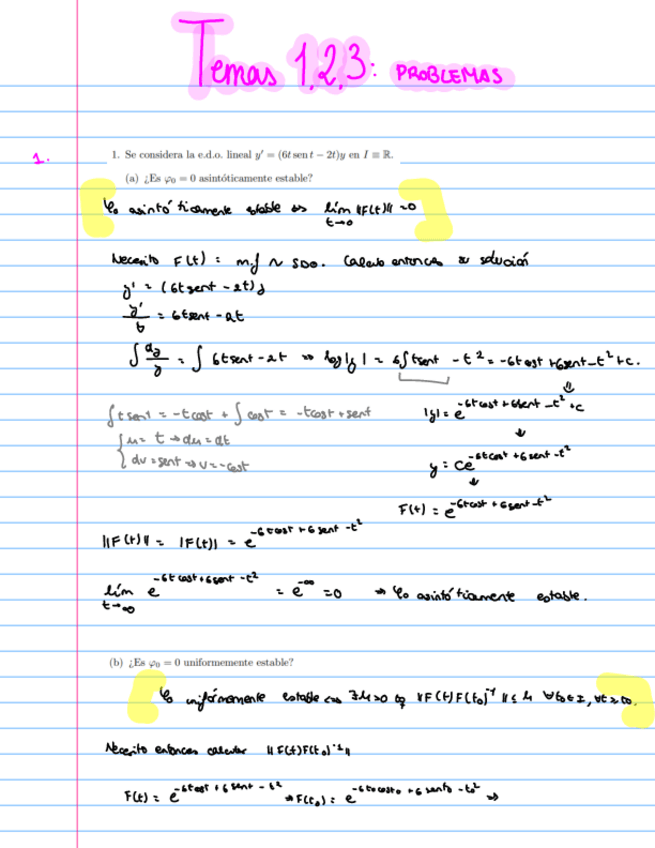 Temas 1,2,3: PROBLEMAS
1.
1. Se considera la e.d.o. lineal y′ = (6t sen t − 2t)y en I ≡ ℝ.
(a) ¿Es φ₀ = 0 asintóticamente estable?
φ₀ asintóticamente estable ⇔ lím ||F(t)|| = 0
t→0
Necesito F(t) = m.f ~ SDO. Calculo entonces su solución
y' = (6t sent - 2t) y
y'/y = 6t sent - 2t
∫ dy/y = ∫ 6t sent - 2t ⇒ log|y| = 6∫t sent - t² = -6t cost + 6 sent - t² + c.
∫ t sent = -t cost + ∫ cost = -t cost + sent
|y| = e^{-6t cost + 6 sent - t² + c}
{ u = t → du = dt
{ dv = sent ⇒ v = -cost
y = Ce^{-6t cost + 6 sent - t²}
F(t) = e^{-6t cost + 6 sent - t²}
||F(t)|| = |F(t)| = e^{-6t cost + 6 sent - t²}
lím e^{-6t cost + 6 sent - t²} = e^{-∞} = 0 ⇒ φ₀ asintóticamente estable.
t→∞
(b) ¿Es φ₀ = 0 uniformemente estable?
φ₀ uniformemente estable ⇔ ∃μ>0 tq ||F(t)F(t₀)⁻¹|| ≤ μ ∀t₀∈I, ∀t≥t₀.
Necesito entonces calcular ||F(t)F(t₀)⁻¹||
F(t) = e^{-6t cost + 6 sent - t²} ⇒ F(t₀) = e^{-6t₀ cost₀ + 6 sent₀ - t₀²} ⇒